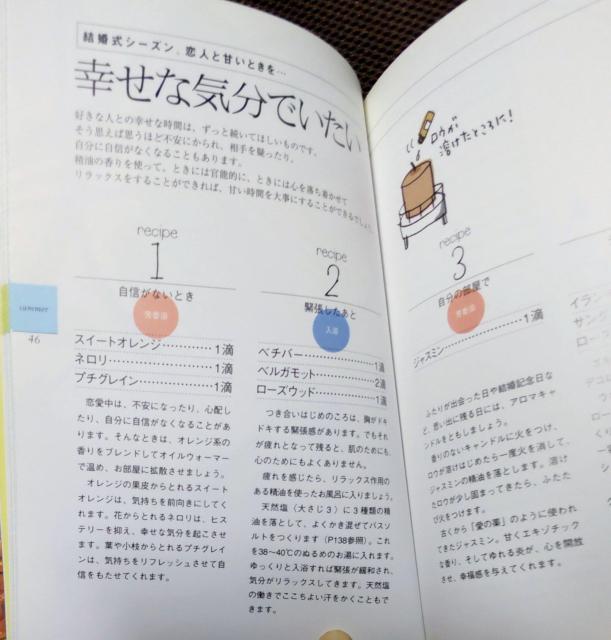 結婚式シーズン、恋人と甘いときを…
幸せな気分でいたい
好きな人との幸せな時間は、ずっと続いてほしいものです。
そう思えば思うほど不安にかられ、相手を疑ったり、
自分に自信がなくなることもあります。
精油の香りを使って、ときには官能的に、ときには心を落ち着かせて
リラックスをすることができれば、甘い時間を大事にすることができるでしょう。
recipe
1
自信がないとき
芳香浴
スイートオレンジ……………1滴
ネロリ……………………1滴
プチグレイン………………1滴
恋愛中は、不安になったり、心配し
たり、自分に自信がなくなることがあ
ります。そんなときは、オレンジ系の
香りをブレンドしてオイルウォーマー
で温め、お部屋に拡散させましょう。
オレンジの果皮からとれるスイート
オレンジは、気持ちを前向きにしてく
れます。花からとれるネロリは、ヒス
テリーを抑え、幸せな気分を起こさせ
ます。葉や小枝からとれるプチグレイ
ンは、気持ちをリフレッシュさせて自
信をもたせてくれます。
summer
46
recipe
2
緊張したあと
入浴
ベチバー……………………1滴
ベルガモット………………2滴
ローズウッド………………1滴
つき合いはじめのころは、胸がドキ
ドキする緊張感があります。でもそれ
が疲れとなって残ると、肌のためにも、
心のためにもよくありません。
疲れを感じたら、リラックス作用の
ある精油を使ったお風呂に入りましょう。
天然塩（大さじ3）に3種類の精
油を落として、よくかき混ぜてバスソ
ルトをつくります（P138参照）。これ
を38〜40℃のぬるめのお湯に入れます。
ゆっくりと入浴すれば緊張が緩和され、
気分がリラックスしてきます。天然塩
の働きでここちよい汗をかくこともで
きます。
ロウが
溶けたところに！
recipe
3
自分の部屋で
芳香浴
ジャスミン…………………1滴
ふたりが出会った日や結婚記念日な
ど、思い出に残る日には、アロマキャ
ンドルをともしましょう。
香りのないキャンドルに火をつけ、
ロウが溶けはじめたら一度火を消して、
ジャスミンの精油を落とします。溶け
たロウが少し固まってきたら、ふたた
び火をつけます。
古くから「愛の薬」のように使われ
てきたジャスミン。甘くエキゾチック
な香り、そしてゆれる炎が、心を開放
させ、幸福感を与えてくれます。
イラン
サンダ
ローズ